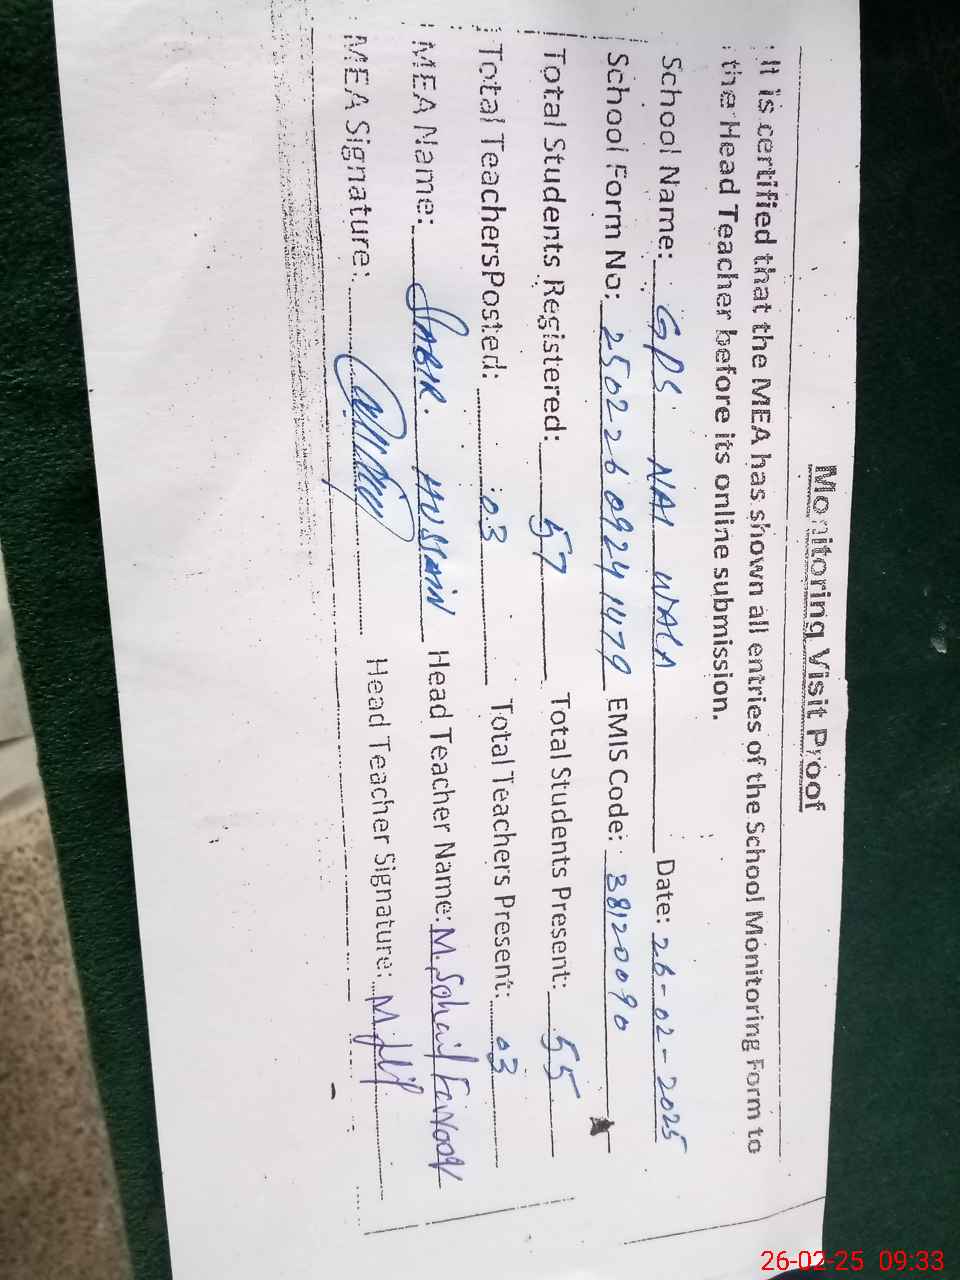 Monitoring Visit Proof
It is certified that the MEA has shown all entries of the School Monitoring Form to
the Head Teacher before its online submission.
School Name: GPS NAI WALA Date: 26-02-2025
School Form No: 25022609241479 EMIS Code: 38120090
Total Students Registered: 57 Total Students Present: 55
Total Teachers Posted: 03 Total Teachers Present: 03
MEA Name: SABIR HUSSAIN Head Teacher Name: M. Sohail
MEA Signature: Head Teacher Signature:
26-02-25 09:33